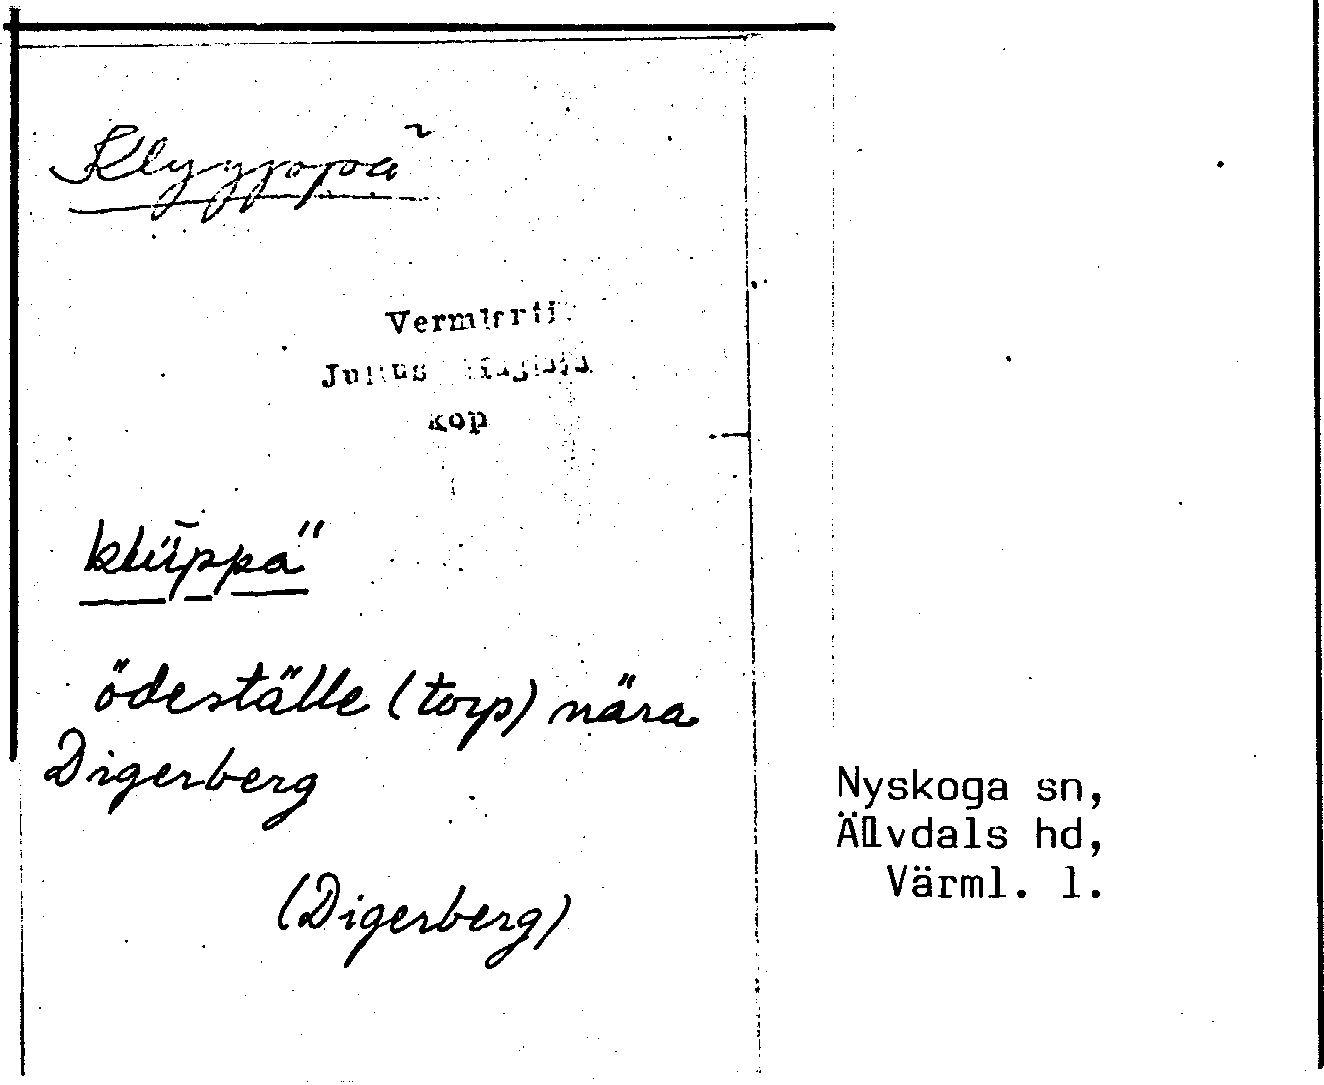 Klyyppa~
Julius
kop
klüppa"
ödeställe (torp) nära
Digerberg
(Digerberg)
Nyskoga sn,
Älvdals hd,
Värml. l.